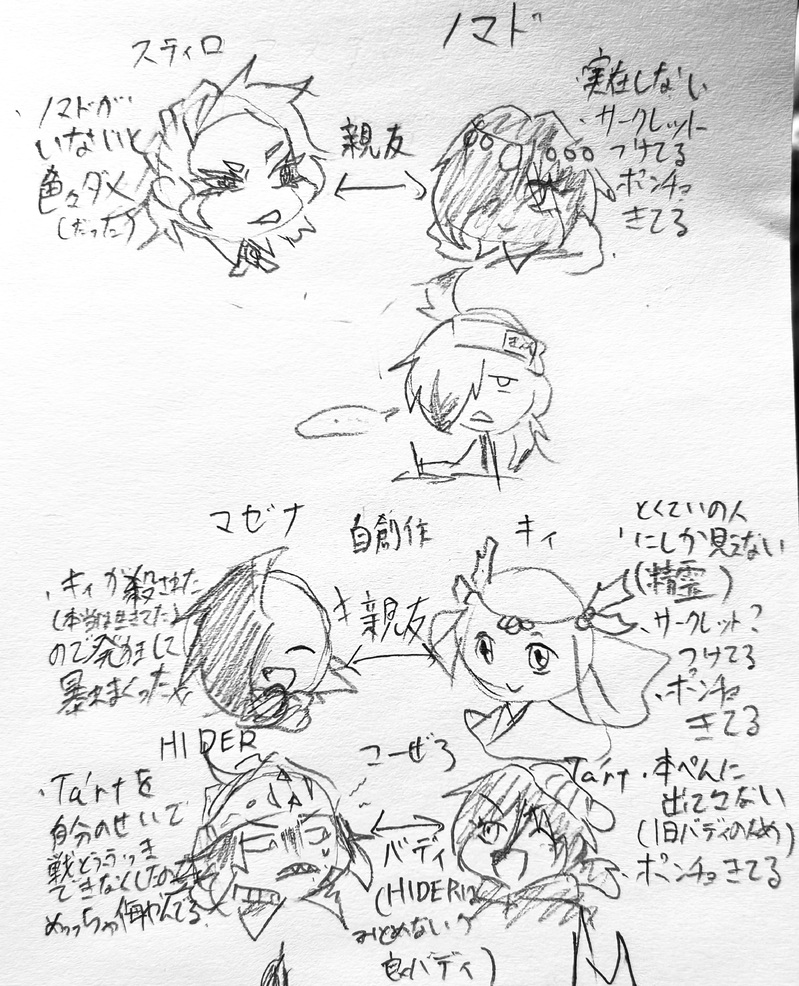 ノマド
スティロ
・ノマドが
いないと
色々ダメ
(だった)
親友
実在しない
・サークレット
つけてる
ポンチョ
きてる
マゼナ
自創作
キィ
・キィが殺された
(本当は生きてた)
ので発狂して
暴れまくった
親友
とくていの人
にしか見えない
(精霊)
・サークレット?
つけてる
・ポンチョ
きてる
HIDER
こーぜろ
Ta'rt
・Ta'rtを
自分のせいで
できなくしたので
めっちゃ悔やんでる
バディ
(HIDERは
みとめない
良バディ)
・本ぺんに
出てこない
(旧バディのため)
ポンチョきてる